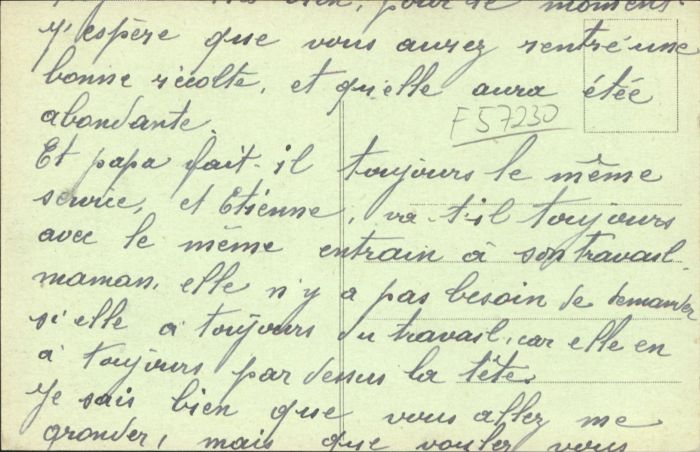 bien, pour le moment.
J'espère que vous aurez rentré une
bonne récolte, et qu'elle aura étée
abondante.
F 57230
Et papa fait-il toujours le même
service, et Etienne, va-t-il toujours
avec le même entrain à son travail.
maman, elle n'y a pas besoin de demander
si elle à toujours du travail, car elle en
à toujours par dessus la tête.
Je sais bien que vous allez me
gronder, mais que voulez vous